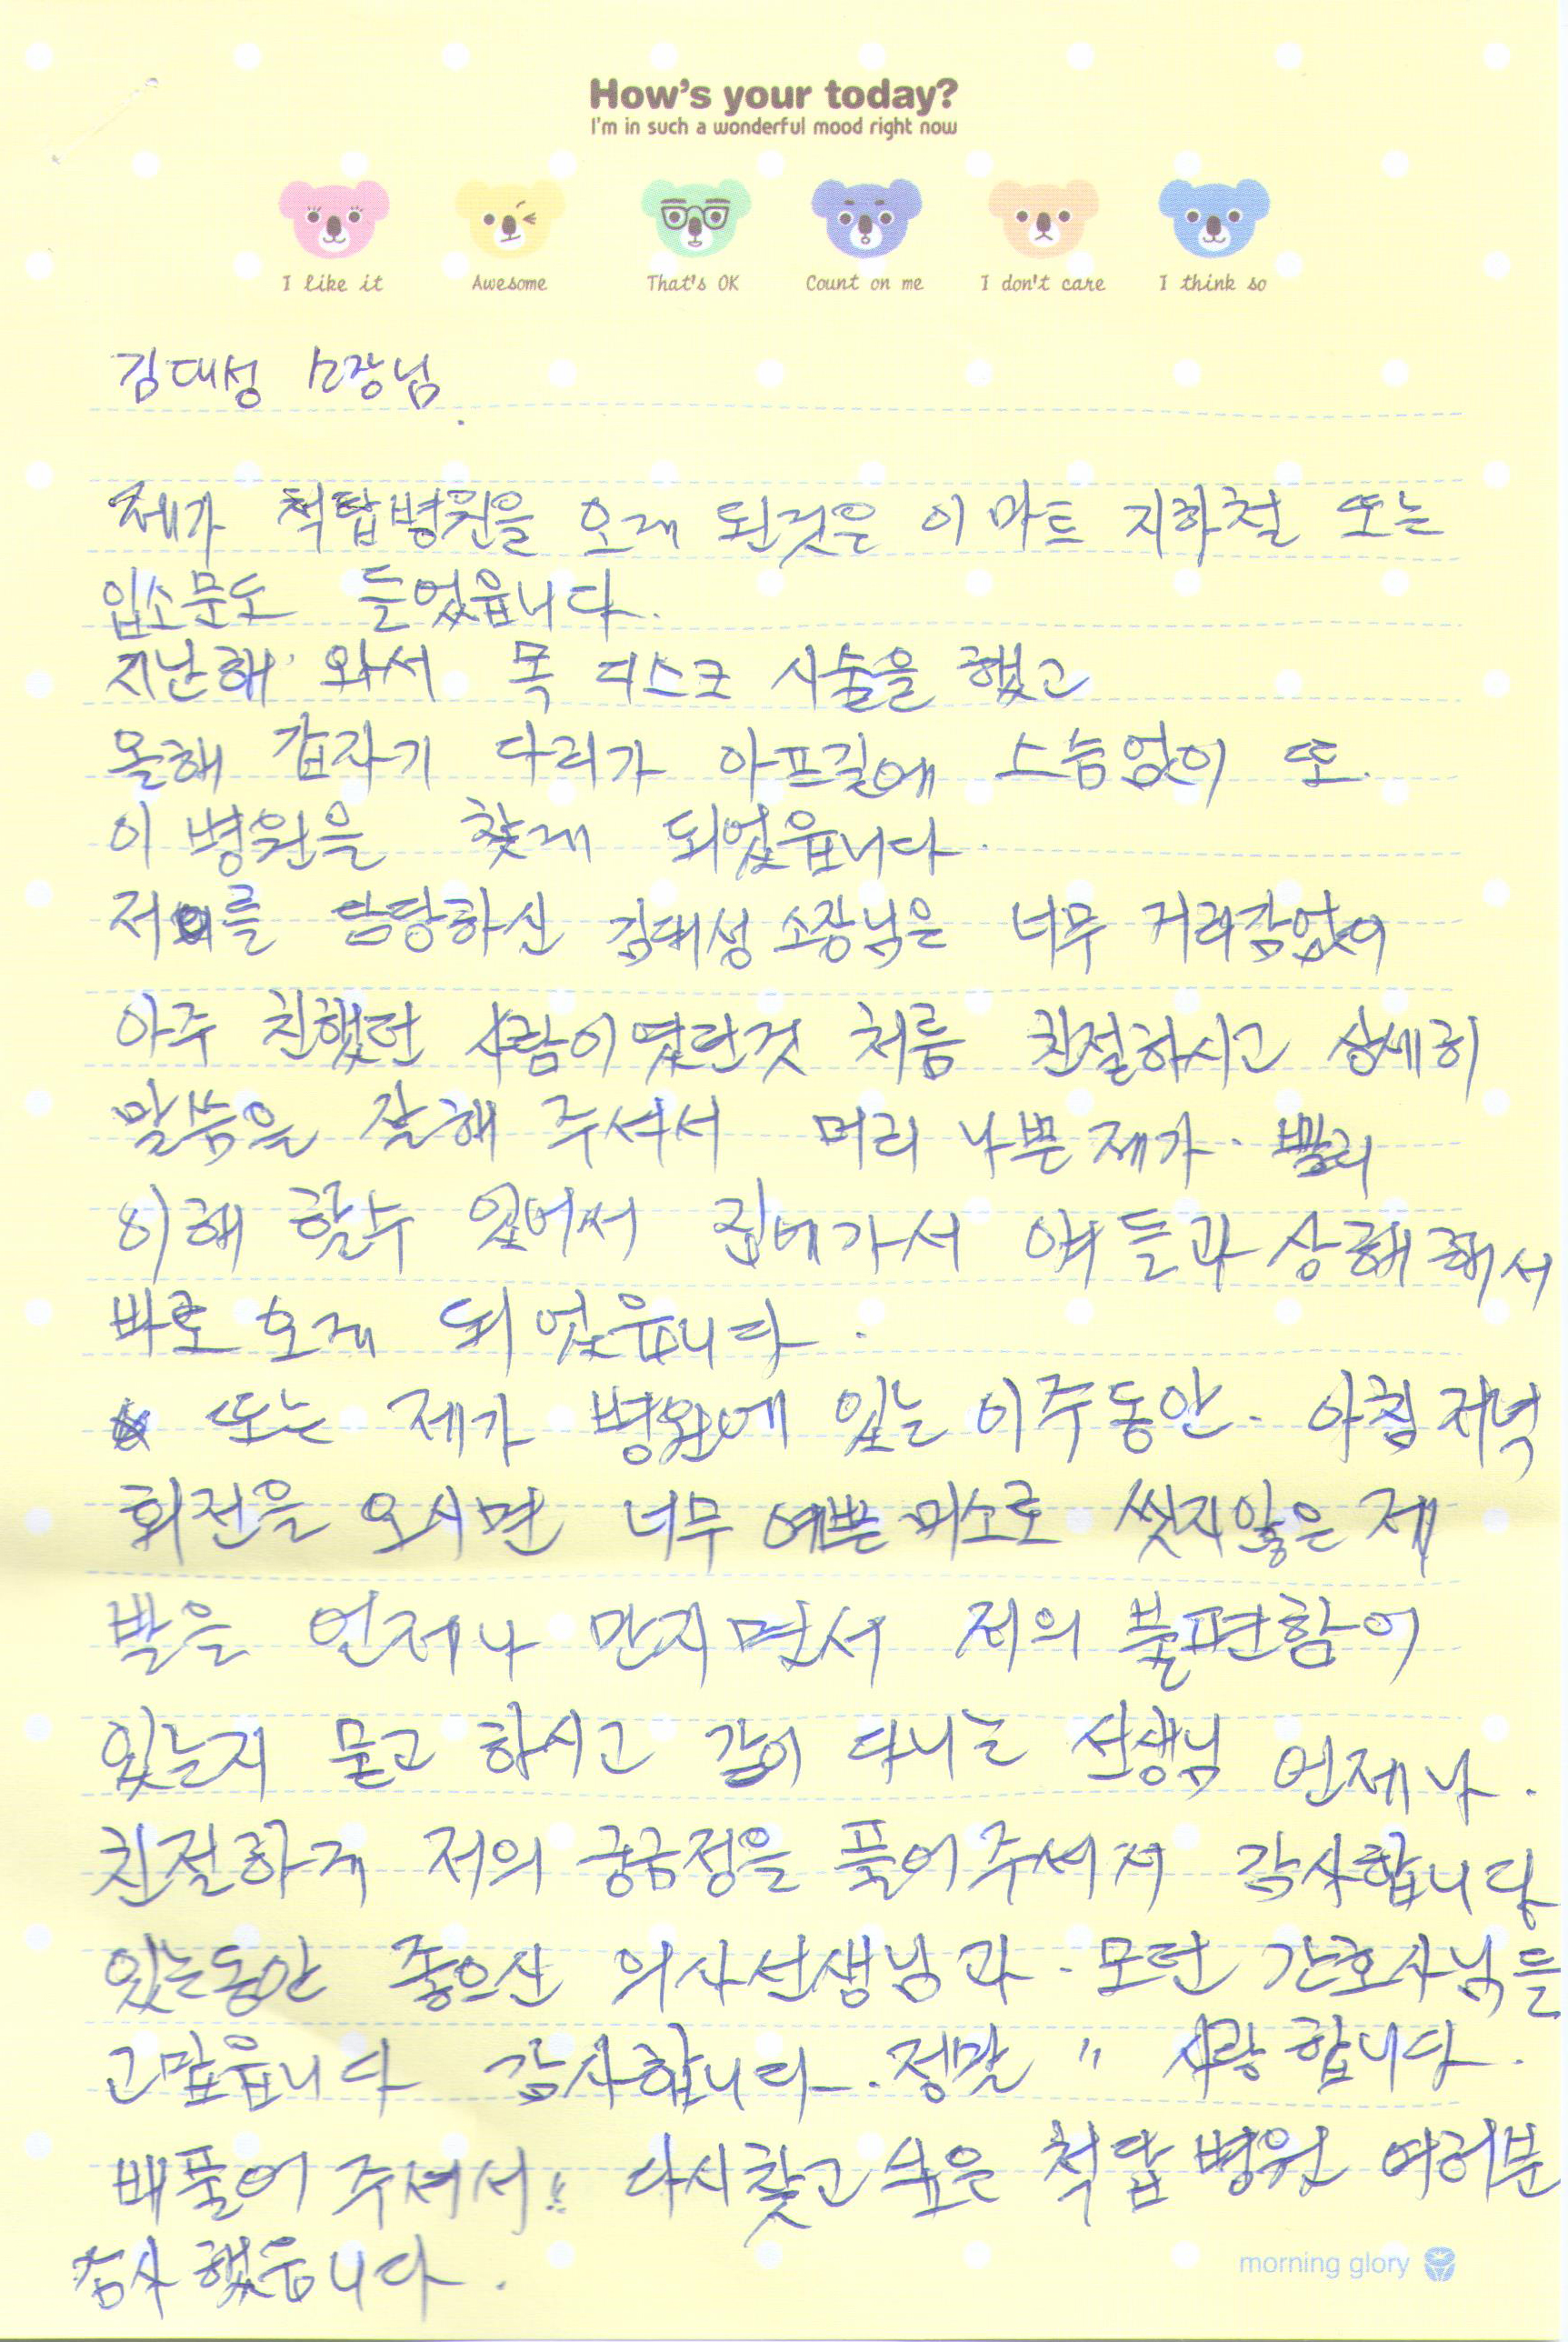 How's your today?
I'm in such a wonderful mood right now
I like it Awesome That's OK Count on me I don't care I think so
김대성 소장님.
제가 척탑병원을 오게 된것은 이마트 지하철 또는
입소문도 들었읍니다.
지난해 와서 목 디스크 시술을 했고
올해 갑자기 다리가 아프길에 스슴없이 또.
이 병원을 찾게 되었읍니다.
저를 담당하신 김대성 소장님은 너무 거리감없이
아주 친했던 사람이였던것 처름 친절하시고 상세히
말씀을 잘해 주셔서 머리 나쁜 제가. 빨리
이해 할수 있어써 집에가서 얘들과 상해해서
바로 오게 되었읍니다.
또는 제가 병원에 있는 이주동안. 아침 저녁
회전을 오시면 너무 예쁜 미소로 씻지않은 제
발을 언제나 만지면서 저의 불편함이
있는지 묻고 하시고 같이 다니는 선생님 언제나.
친절하게 저의 궁금정을 풀어주셔서 감사합니다
있는동안 좋으신 의사선생님과. 모던 간호사님들
고맙읍니다 감사합니다. 정말 " 사랑합니다.
배풀어 주셔서 " 다시찾고 싶은 척탑병원 여러분
감사했읍니다.
morning glory